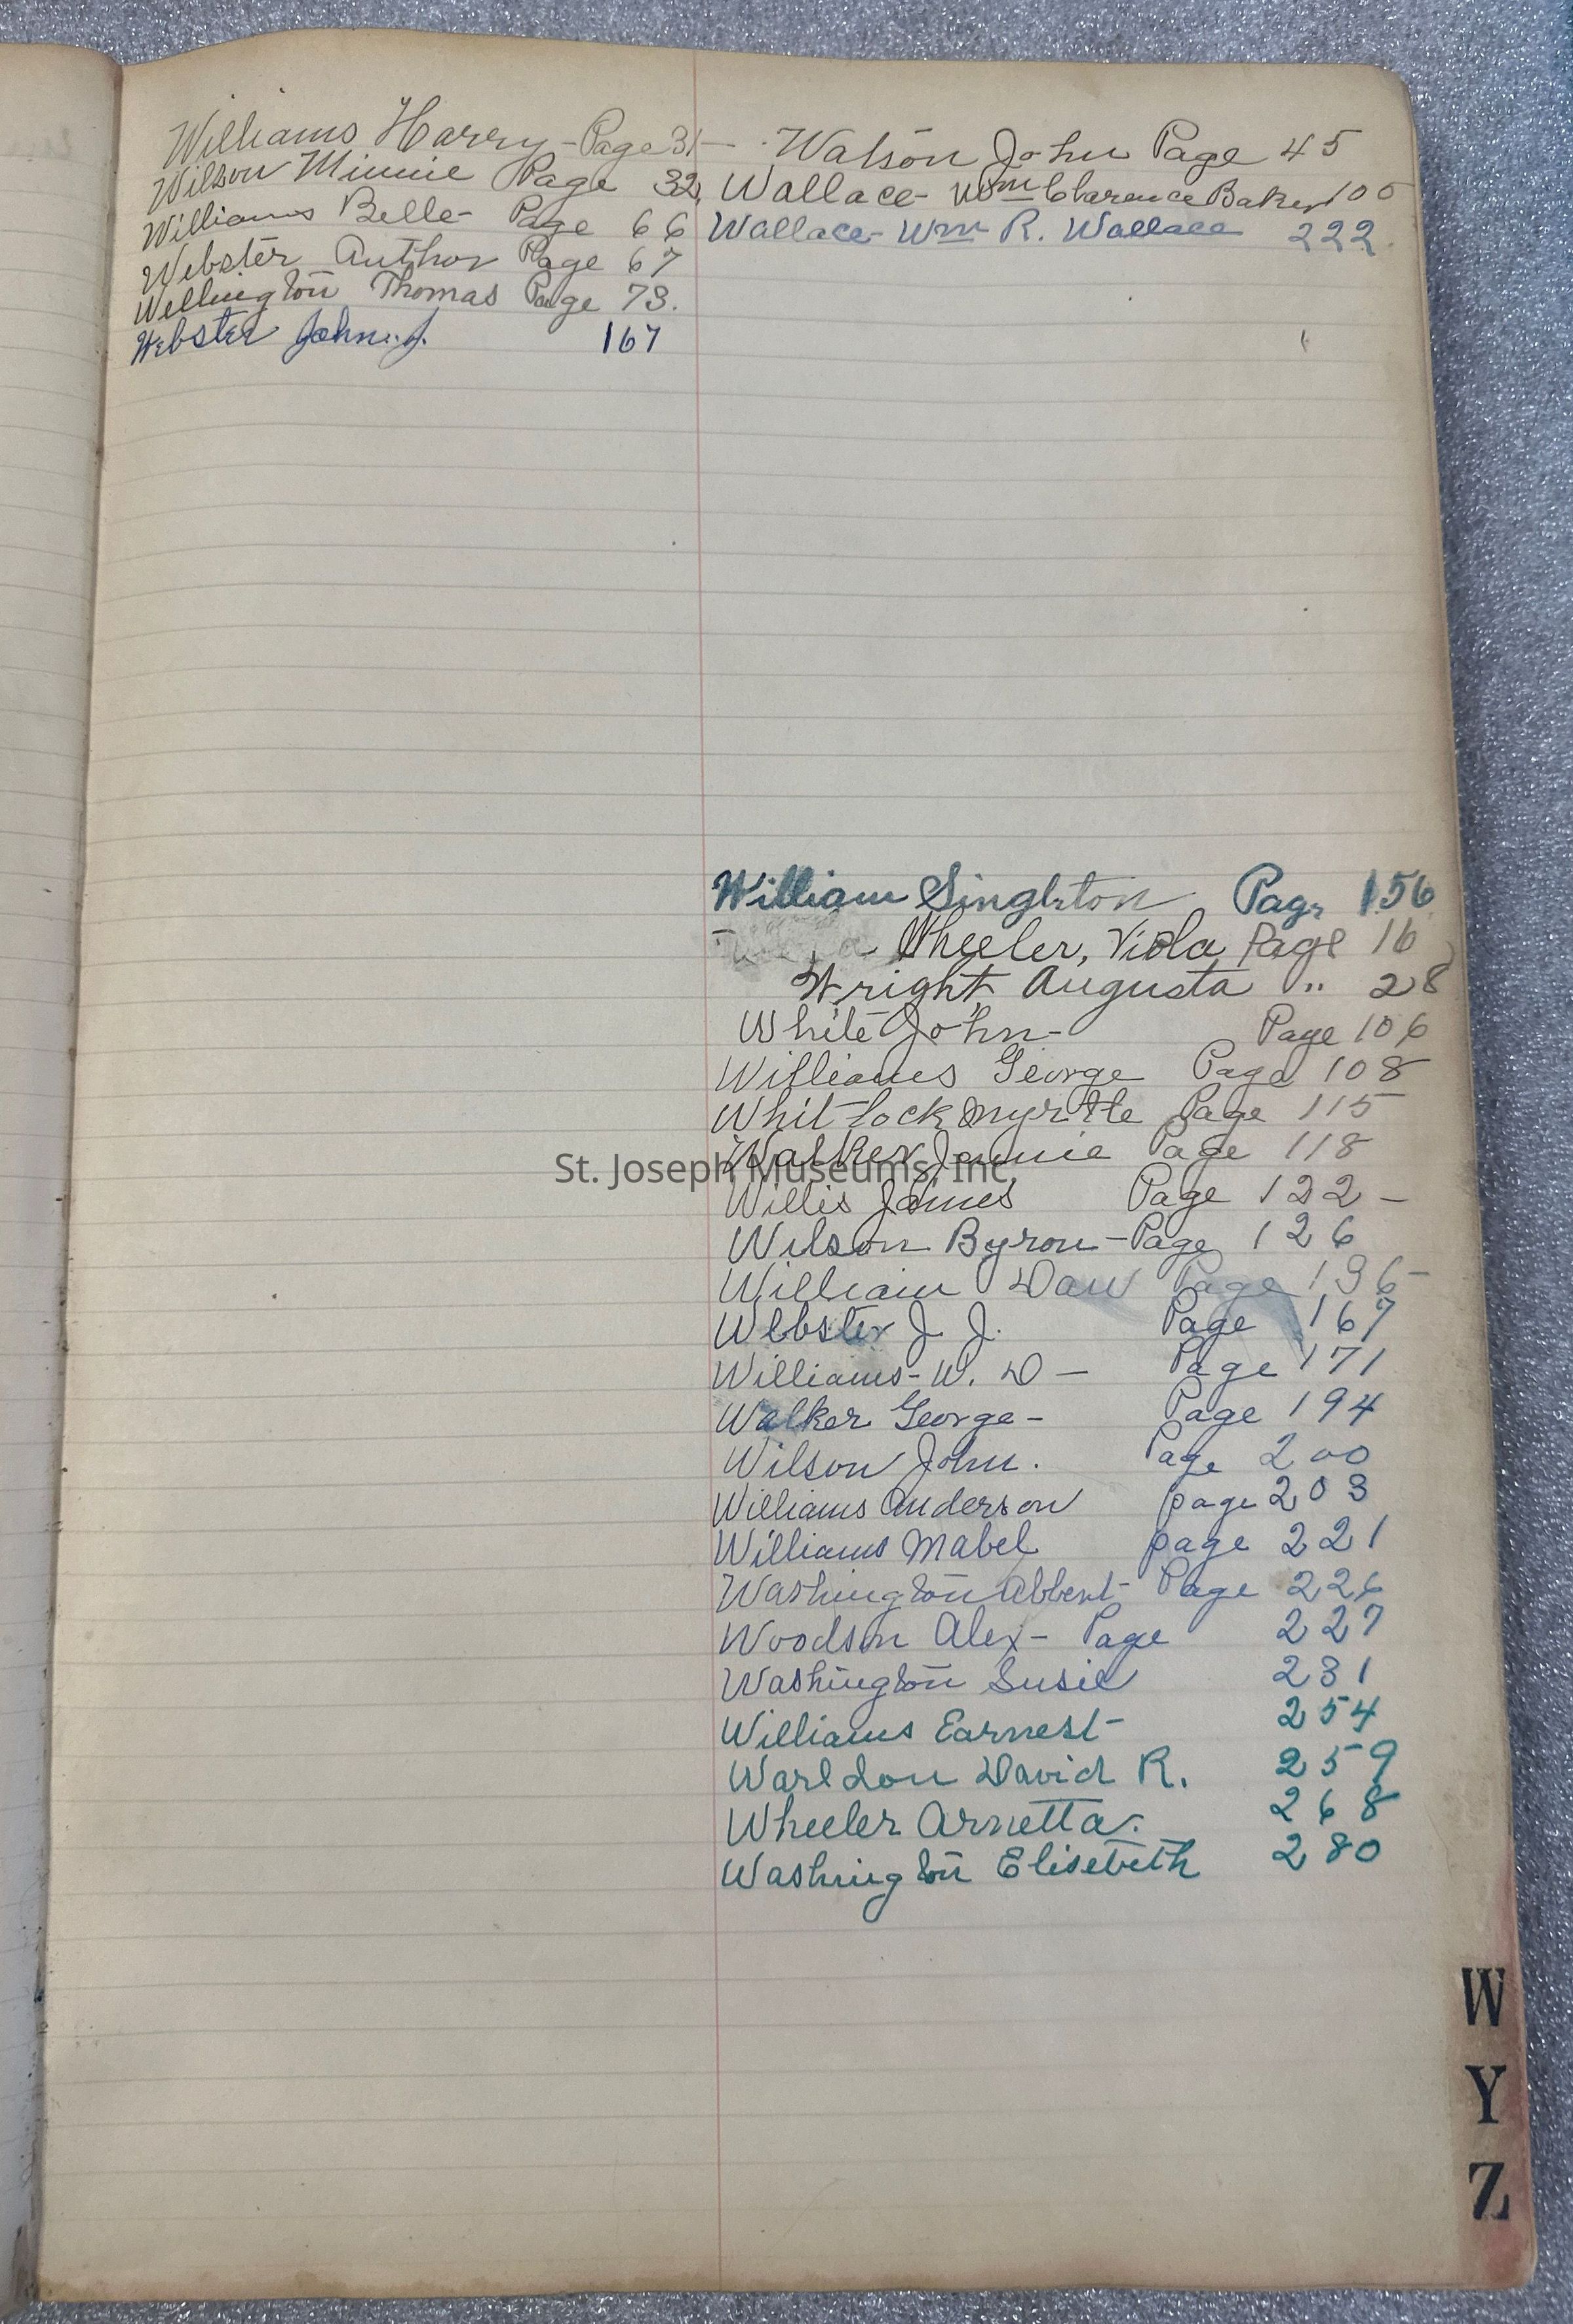 Williams Harry - Page 31 -
Wilson Minnie Page 32
Williams Belle - Page 66
Webster Author Page 67
Wellington Thomas Page 73.
Webster John. J. 167
Watson John Page 45
Wallace - Wm Clarence Baker 100
Wallace - Wm R. Wallace 222.
William Singleton Page 156
Wheeler, Viola Page 16
Wright Augusta " 28
White John - Page 106
Williams George Page 108
Whitlock Myrtle Page 115
Walker Jennie Page 118
St. Joseph Museums, Inc.
Willis James Page 122 -
Wilson Byron - Page 126
William Dau Page 196 -
Webster J. J. Page 167
Williams - W. D - Page 171
Walker George - Page 194
Wilson John. Page 200
Williams Anderson page 203
Williams Mabel page 221
Washington Albert - Page 226
Woodson Alex - Page 227
Washington Susie 231
Williams Earnest - 254
Warldon David R. 259
Wheeler Arnetta. 268
Washington Elisebeth 280
W
Y
Z